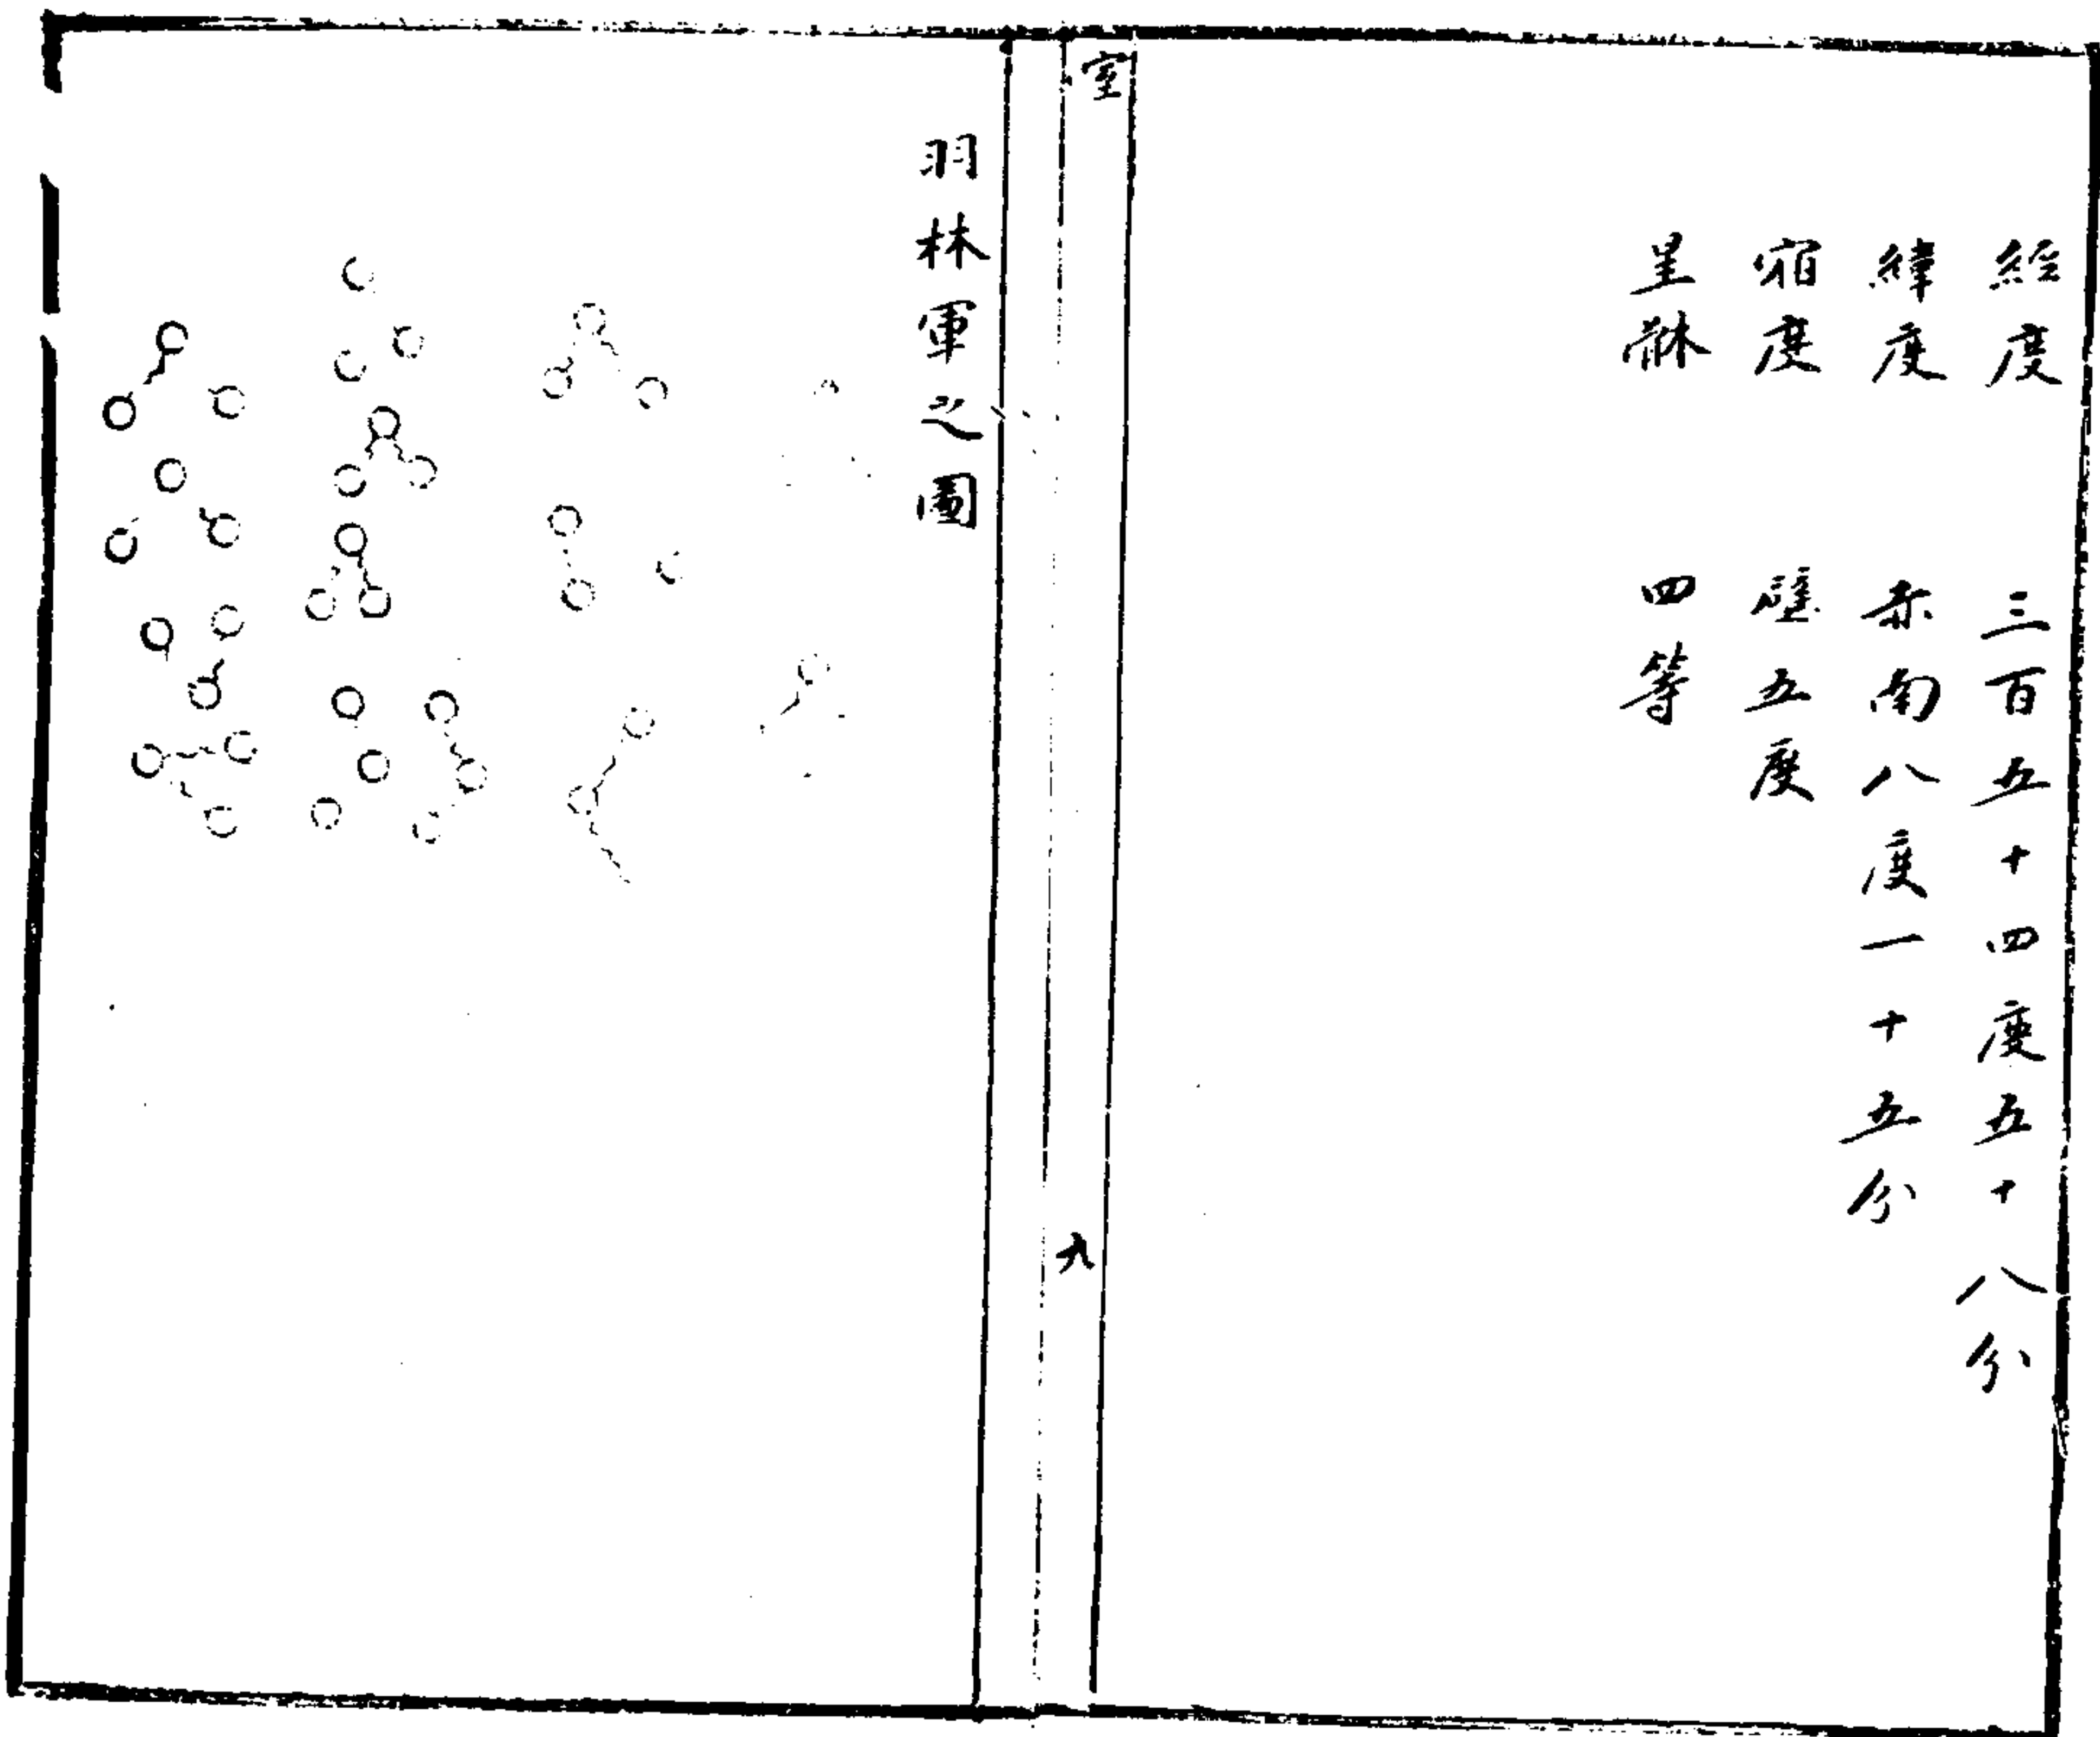 經度 三百五十四度五十八分
緯度 赤南八度一十五分
宿度 壁五度
星 四等
室
九
羽林軍之圖